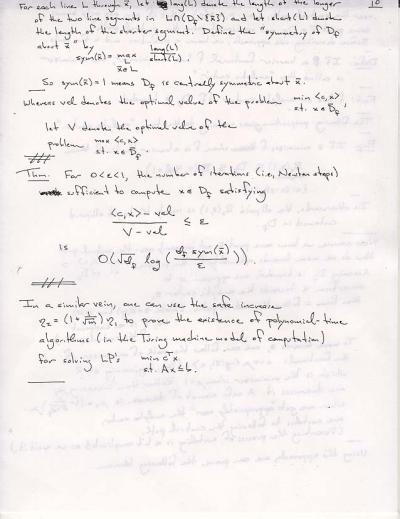 10
For each line L through x̄, let long(L) denote the length of the longer
of the two line segments in L∩(D_f \ {x̄}) and let short(L) denote
the length of the shorter segment. Define the "symmetry of D_f
about x̄" by
sym(x̄) = max_{L, x̄∈L} long(L)/short(L).
So sym(x̄)=1 means D_f is centrally symmetric about x̄.
Whereas val denotes the optimal value of the problem min <c,x> st. x∈D̄_f,
let V denote the optimal value of the
problem max <c,x> st. x∈D̄_f.
Thm: For 0<ε<1, the number of iterations (i.e., Newton steps)
sufficient to compute x∈D_f satisfying
(<c,x> - val)/(V - val) ≤ ε
is
O(√ϑ_f log(ϑ_f sym(x̄)/ε)).
In a similar vein, one can use the safe increase
η₂ = (1 + 1/√m) η₁ to prove the existence of polynomial-time
algorithms (in the Turing machine model of computation)
for solving LP's min cᵀx
st. Ax≤b.